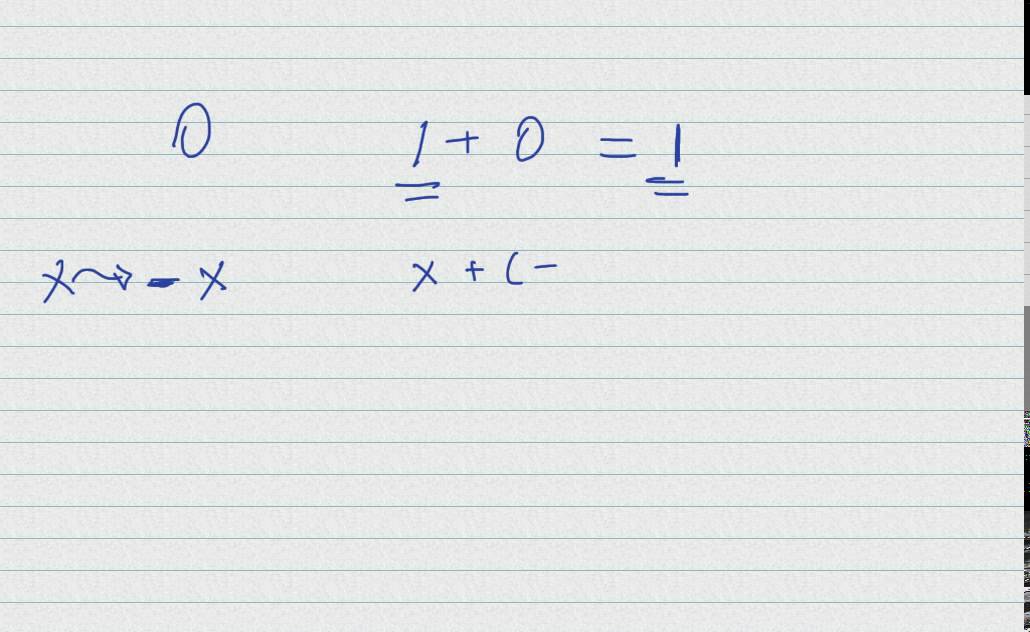 0 1 + 0 = 1
x ⇝ - x x + (-